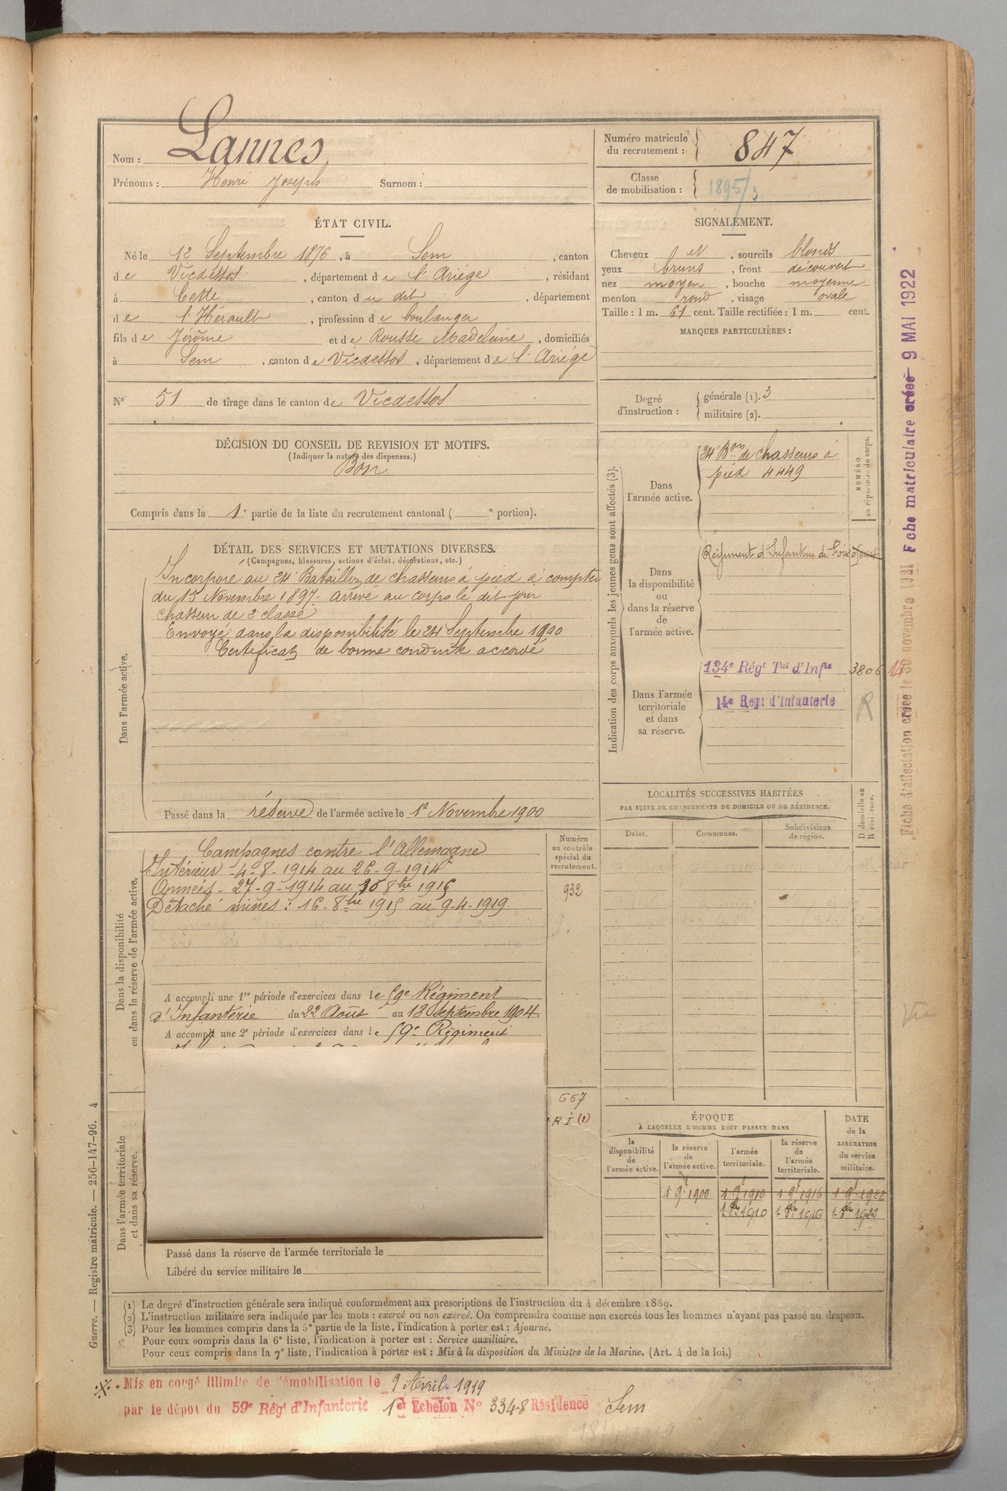 Nom : Lannes
Prénoms : Henri Joseph Surnom :
Numéro matricule du recrutement : 847
Classe de mobilisation : 1895/3
ÉTAT CIVIL.
Né le 12 Septembre 1876, à Sem, canton
de Vicdessos, département de l'Ariège, résidant
à Cette, canton du dit, département
de l'Hérault, profession de boulanger
fils de Jérôme et de Rousse Madeleine, domiciliés
à Sem, canton de Vicdessos, département de l'Ariège
N° 51 de tirage dans le canton de Vicdessos
SIGNALEMENT.
Cheveux et, sourcils blonds
yeux bruns, front découvert
nez moyen, bouche moyenne
menton rond, visage ovale
Taille : 1 m. 61 cent. Taille rectifiée : 1 m. cent.
MARQUES PARTICULIÈRES :
Degré d'instruction :
générale (1). 3
militaire (2).
DÉCISION DU CONSEIL DE REVISION ET MOTIFS.
(Indiquer la nature des dispenses.)
Bon
Compris dans la 1e partie de la liste du recrutement cantonal ( e portion).
DÉTAIL DES SERVICES ET MUTATIONS DIVERSES.
(Campagnes, blessures, actions d'éclat, décorations, etc.)
Dans l'armée active.
Incorporé au 24e Bataillon de chasseurs à pied à compter
du 15 Novembre 1897. arrivé au corps le dit jour
chasseur de 2e classe
Envoyé dans la disponibilité le 24 Septembre 1900
Certificat de bonne conduite accordé
Passé dans la réserve de l'armée active le 1er Novembre 1900
Dans la disponibilité
ou dans la réserve de l'armée active.
Campagnes contre l'Allemagne
Intérieur - 4-8-1914 au 26-9-1914
Armées - 27-9-1914 au 8bre 1915
Détaché mines : 16-8bre 1915 au 9-4-1919
Numéro
au contrôle
spécial du
recrutement.
932
A accompli une 1re période d'exercices dans le 59e Régiment
d'Infanterie du 22 Août au 18 septembre 1904
A accompli une 2e période d'exercices dans le 59e Régiment
Dans l'armée territoriale
et dans sa réserve.
667
R I (2)
Passé dans la réserve de l'armée territoriale le
Libéré du service militaire le
Indication des corps auxquels les jeunes gens sont affectés (3).
NUMÉRO
au répertoire du corps.
Dans
l'armée active.
24e Bon de chasseurs à
pied 4449
Dans
la disponibilité
ou
dans la réserve
de
l'armée active.
Régiment d'Infanterie de Foix
Dans l'armée
territoriale
et dans
sa réserve.
134e Régt Tal d'Infie 3806 14
14e Regt d'Infanterie R
LOCALITÉS SUCCESSIVES HABITÉES
PAR SUITE DE CHANGEMENTS DE DOMICILE OU DE RÉSIDENCE.
Dates. Communes. Subdivisions de région. D domicile ou R résidence.
ÉPOQUE
À LAQUELLE L'HOMME DOIT PASSER DANS
DATE
de la
LIBÉRATION
du service
militaire.
la disponibilité de l'armée active.
la réserve de l'armée active.
l'armée territoriale.
la réserve de l'armée territoriale.
1 9e 1900 1 9e 1910 1 9e 1916 1 9e 1922
1 8bre 1910 1 8bre 1916 1 8bre 1922
Fiche d'affectation créée le novembre Fiche matriculaire créée 9 MAI 1922
Guerre. — Registre matricule. — 256-147-96. 4
(1) Le degré d'instruction générale sera indiqué conformément aux prescriptions de l'instruction du 4 décembre 1889.
(2) L'instruction militaire sera indiquée par les mots : exercé ou non exercé. On comprendra comme non exercés tous les hommes n'ayant pas passé au drapeau.
(3) Pour les hommes compris dans la 5e partie de la liste, l'indication à porter est : Ajourné.
Pour ceux compris dans la 6e liste, l'indication à porter est : Service auxiliaire.
Pour ceux compris dans la 7e liste, l'indication à porter est : Mis à la disposition du Ministre de la Marine. (Art. 4 de la loi.)
Mis en congé illimité de démobilisation le 9 Avril 1919
par le dépôt du 59e Régt d'Infanterie 1er Echelon No 3348 Résidence Sem